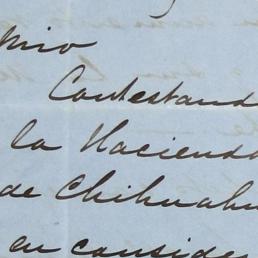 mio
Contestand
la Hacienda
de Chihuahu
en conside